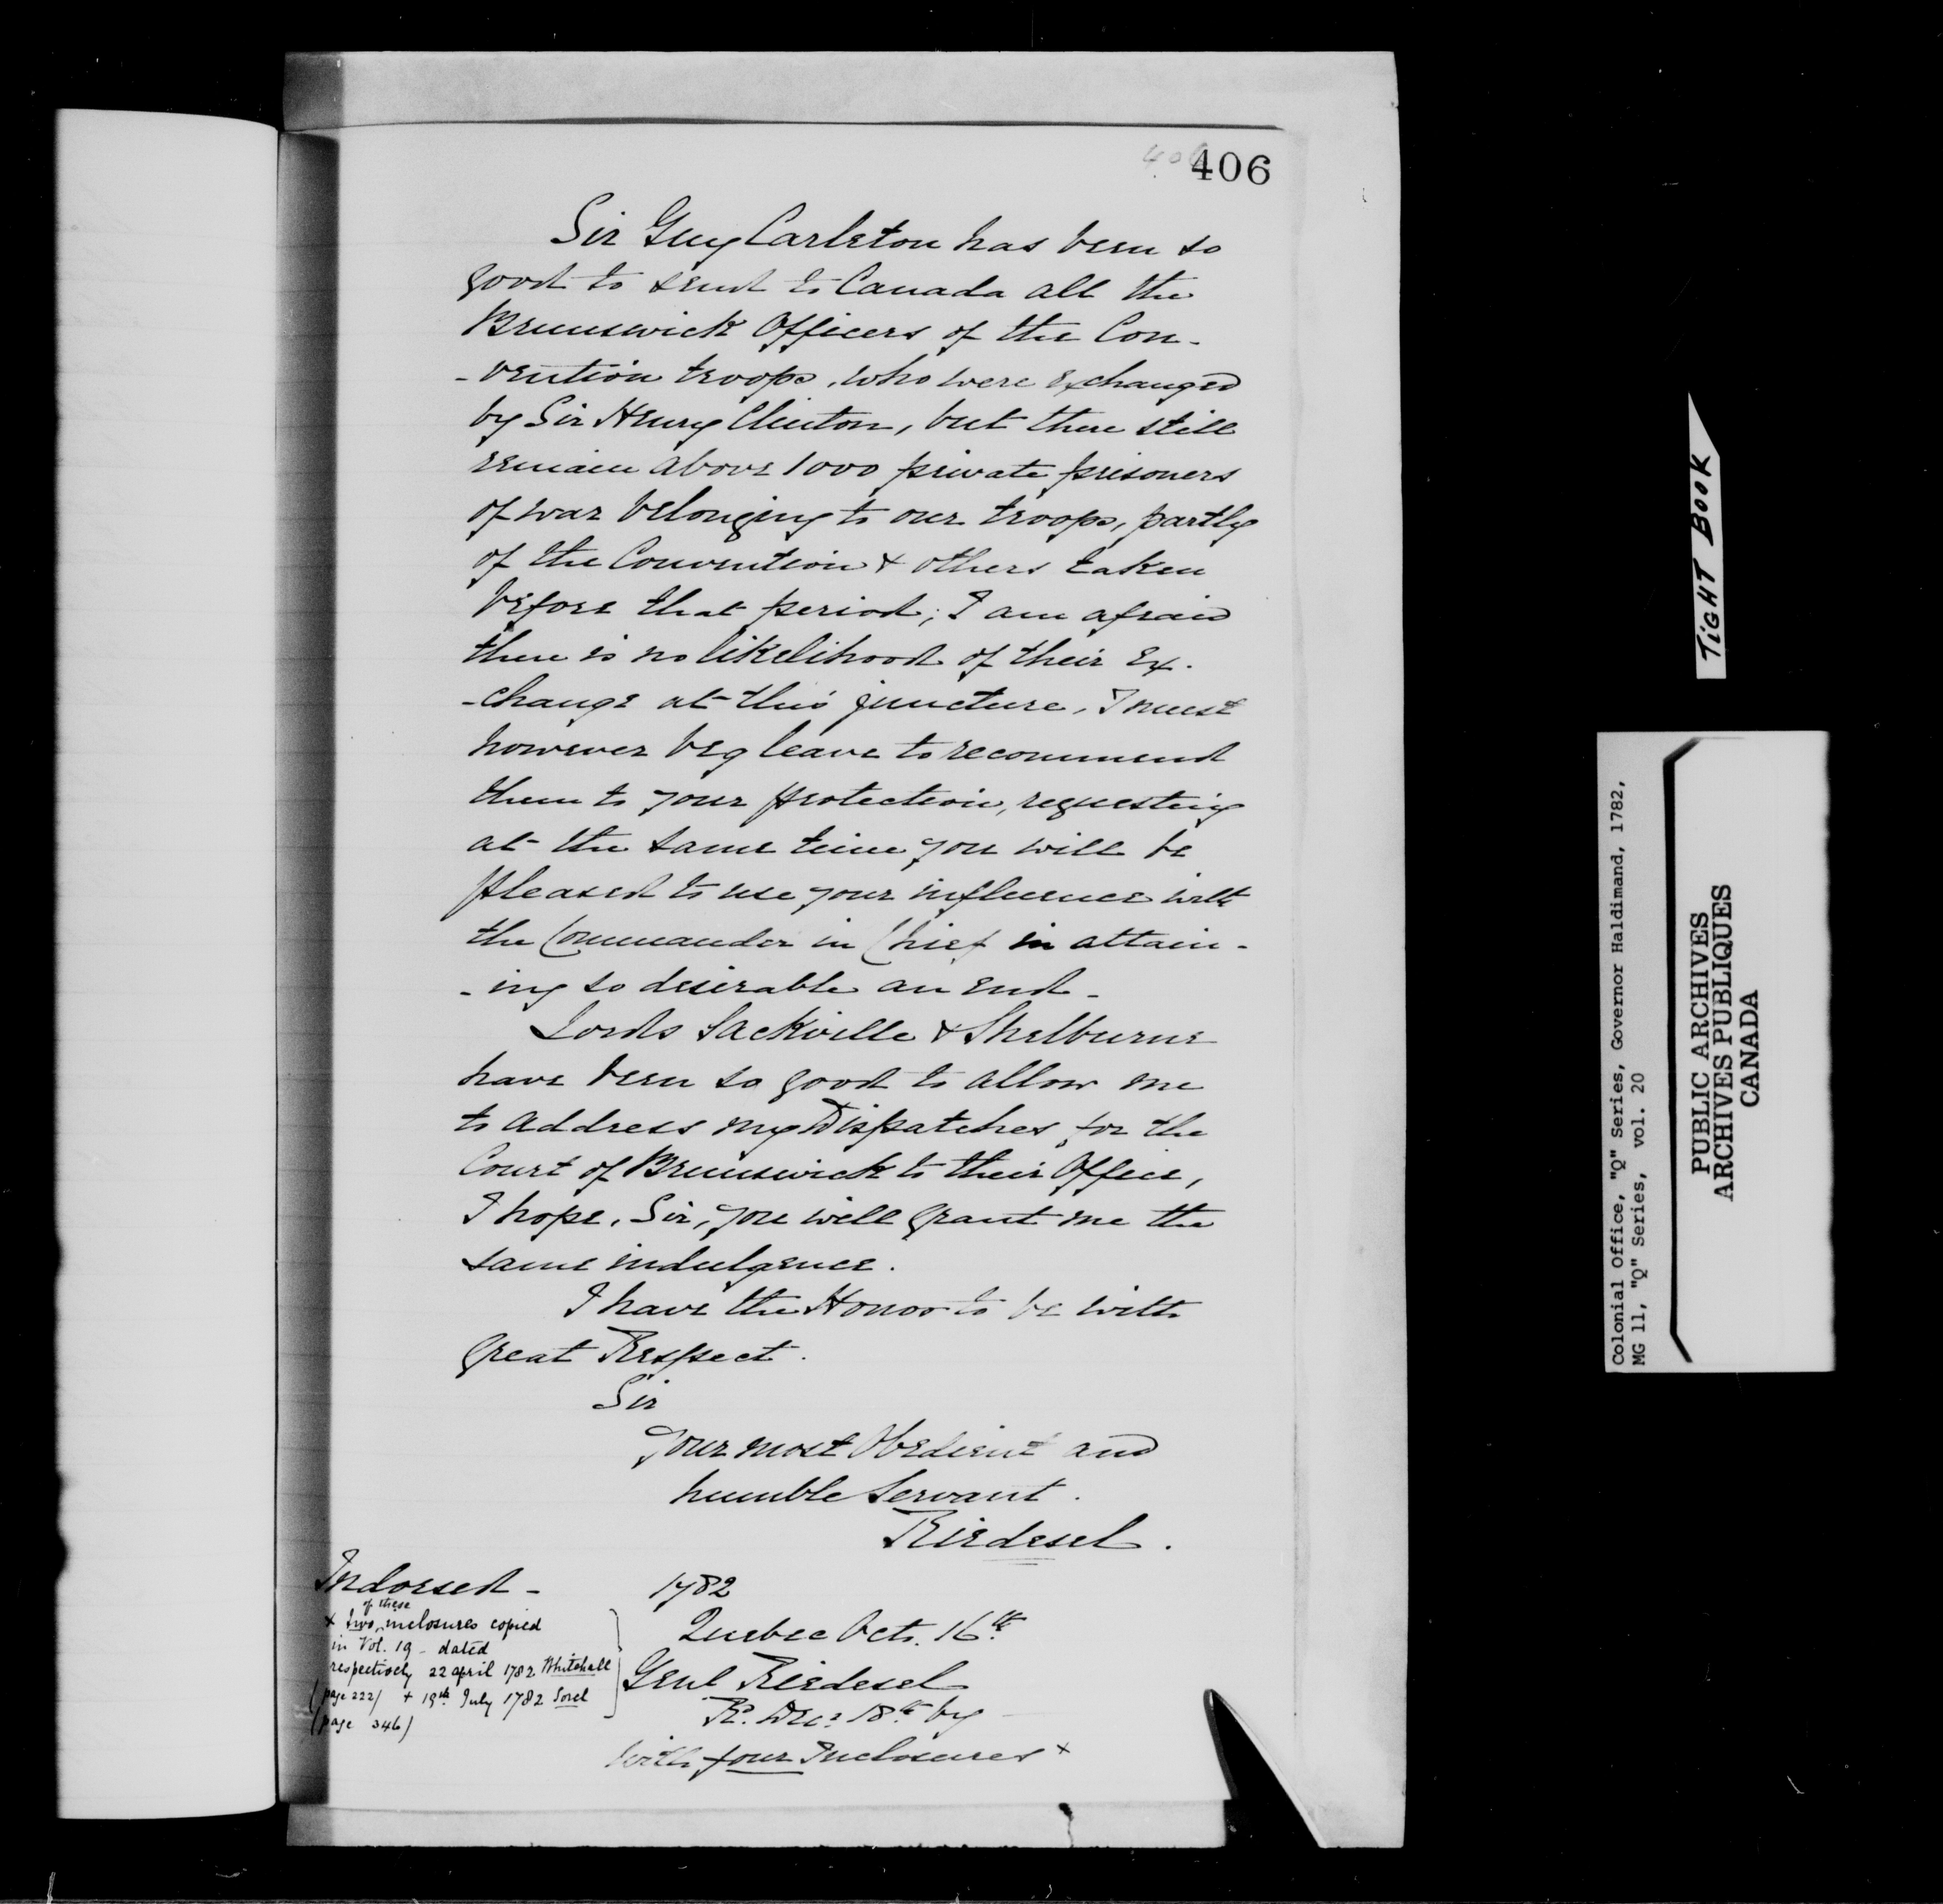 406
406
Sir Guy Carleton has been so
good to send to Canada all the
Brunswick Officers of the Con-
-vention troops, who were exchanged
by Sir Henry Clinton, but there still
remain above 1000 private prisoners
of war belonging to our troops, partly
of the Convention & others taken
before that period; I am afraid
there is no likelihood of their Ex-
-change at this juncture, I must
however beg leave to recommend
them to your protection, requesting
at the same time you will be
pleased to use your influence with
the Commander in Chief in attain-
-ing so desirable an end-
Lords Sackville & Shelburne
have been so good to allow me
to address my Dispatches for the
Court of Brunswick to their Office,
I hope, Sir, you will grant me the
same indulgence.
I have the Honor to be with
great Respect.
Sir
your most Obedient and
humble Servant.
Riedesel.
Indorsed-
1782
Quebec Octr. 16th
Genl Riedesel
R. Decr 18th by
with four Inclosures x
x Two of these inclosures copied
in Vol. 19 - dated
respectively 22 april 1782 Whitehall
(page 222) + 19th July 1782 Sorel
(page 346)
TIGHT BOOK
Colonial Office, "Q" Series, Governor Haldimand, 1782,
MG 11, "Q" Series, vol. 20
PUBLIC ARCHIVES
ARCHIVES PUBLIQUES
CANADA